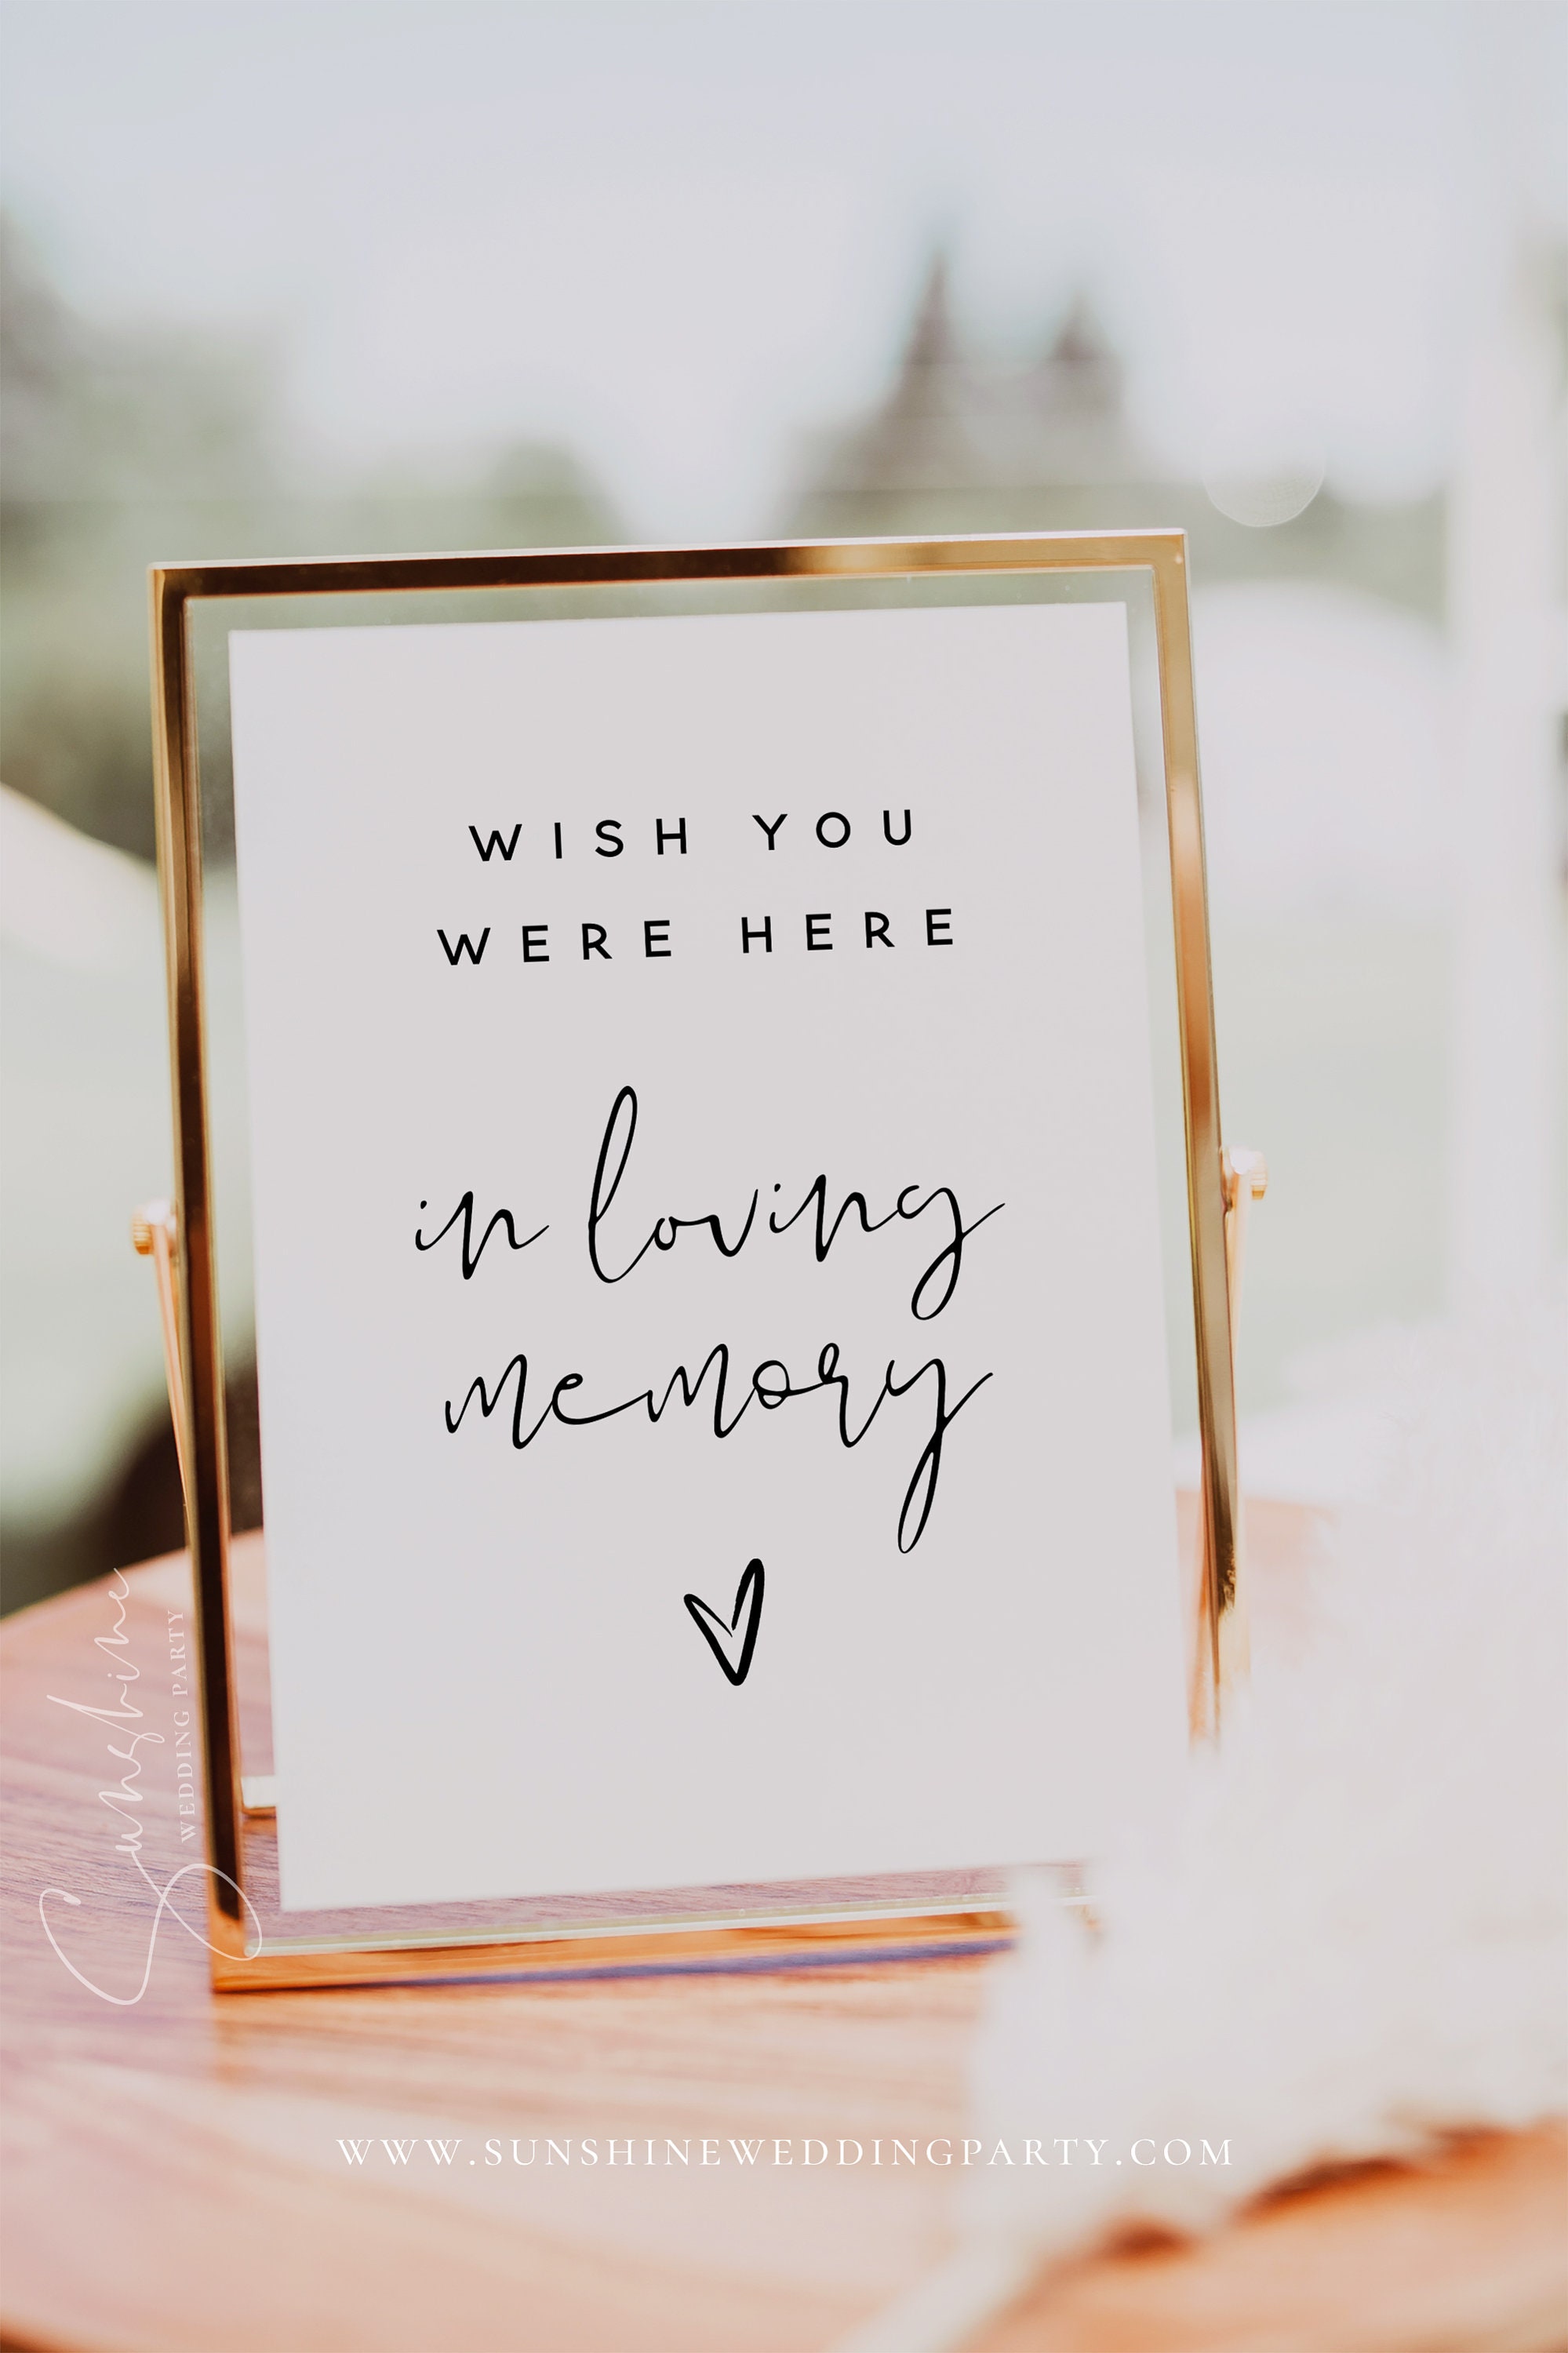 WISH YOU
WERE HERE
in loving
memory
Sunshine
WEDDING PARTY
WWW.SUNSHINEWEDDINGPARTY.COM